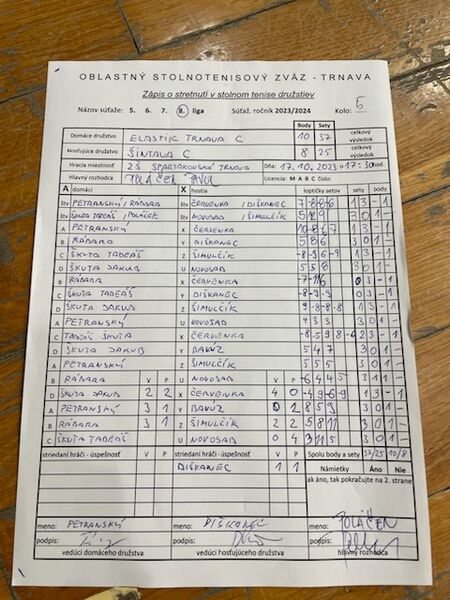 OBLASTNÝ STOLNOTENISOVÝ ZVÄZ - TRNAVA
Zápis o stretnutí v stolnom tenise družstiev
Názov súťaže: 5. 6. 7. 8. liga Súťaž. ročník 2023/2024 Kolo: 5
Body Sety
Domáce družstvo ELASTIK TRNAVA C 10 37 celkový výsledok
Hosťujúce družstvo ŠINTAVA C 8 25 celkový výsledok
Hracia miestnosť ZŠ SPARTAKOVSKÁ TRNAVA Dňa: 17.10.2023 o 17:30 hod.
Hlavný rozhodca POLÁČEK Licencia: M A B C číslo:
A domáci X hostia loptičky setov sety body
štv PETRANSKÝ / RÁBARA štv ČERVENKA / DIŠKANEC 1 3 - 1
štv ŠKUTA TADEÁŠ / POLÁČEK štv NOVOSAD / ŠIMULČÍK 3 0 1 -
A PETRANSKÝ X ČERVENKA 1 3 - 1
B RÁBARA Y DIŠKANEC 5 8 6 3 0 1 -
C ŠKUTA TADEÁŠ Z ŠIMULČÍK 1 3 - 1
D ŠKUTA JAKUB U NOVOSAD 5 5 8 3 0 1 -
B RÁBARA X ČERVENKA 0 3 - 1
C ŠKUTA TADEÁŠ Y DIŠKANEC 0 3 - 1
D ŠKUTA JAKUB Z ŠIMULČÍK 1 3 - 1
A PETRANSKÝ U NOVOSAD 4 3 3 3 0 1 -
C TADEÁŠ ŠKUTA X ČERVENKA 2 3 - 1
D ŠKUTA JAKUB Y BAVÚZ 5 4 7 3 0 1 -
A PETRANSKÝ Z ŠIMULČÍK 5 5 5 3 0 1 -
B RÁBARA V P U NOVOSAD V P -6 4 4 5 3 1 1 -
D ŠKUTA JAKUB 2 2 X ČERVENKA 4 0 1 3 - 1
A PETRANSKÝ 3 1 Y BAVÚZ 0 2 8 5 9 3 0 1 -
B RÁBARA 3 1 Z ŠIMULČÍK 2 2 5 8 11 3 0 1 -
C ŠKUTA TADEÁŠ U NOVOSAD 0 4 3 11 5 3 0 1 -
striedaní hráči - úspešnosť V P striedaní hráči - úspešnosť V P Spolu body a sety 37/25 10/8
DIŠKANEC 1 1 Námietky Áno Nie
ak áno, tak pokračujte na 2. strane
meno: PETRANSKÝ meno: DIŠKANEC meno: POLÁČEK
podpis: podpis: podpis:
vedúci domáceho družstva vedúci hosťujúceho družstva hlavný rozhodca